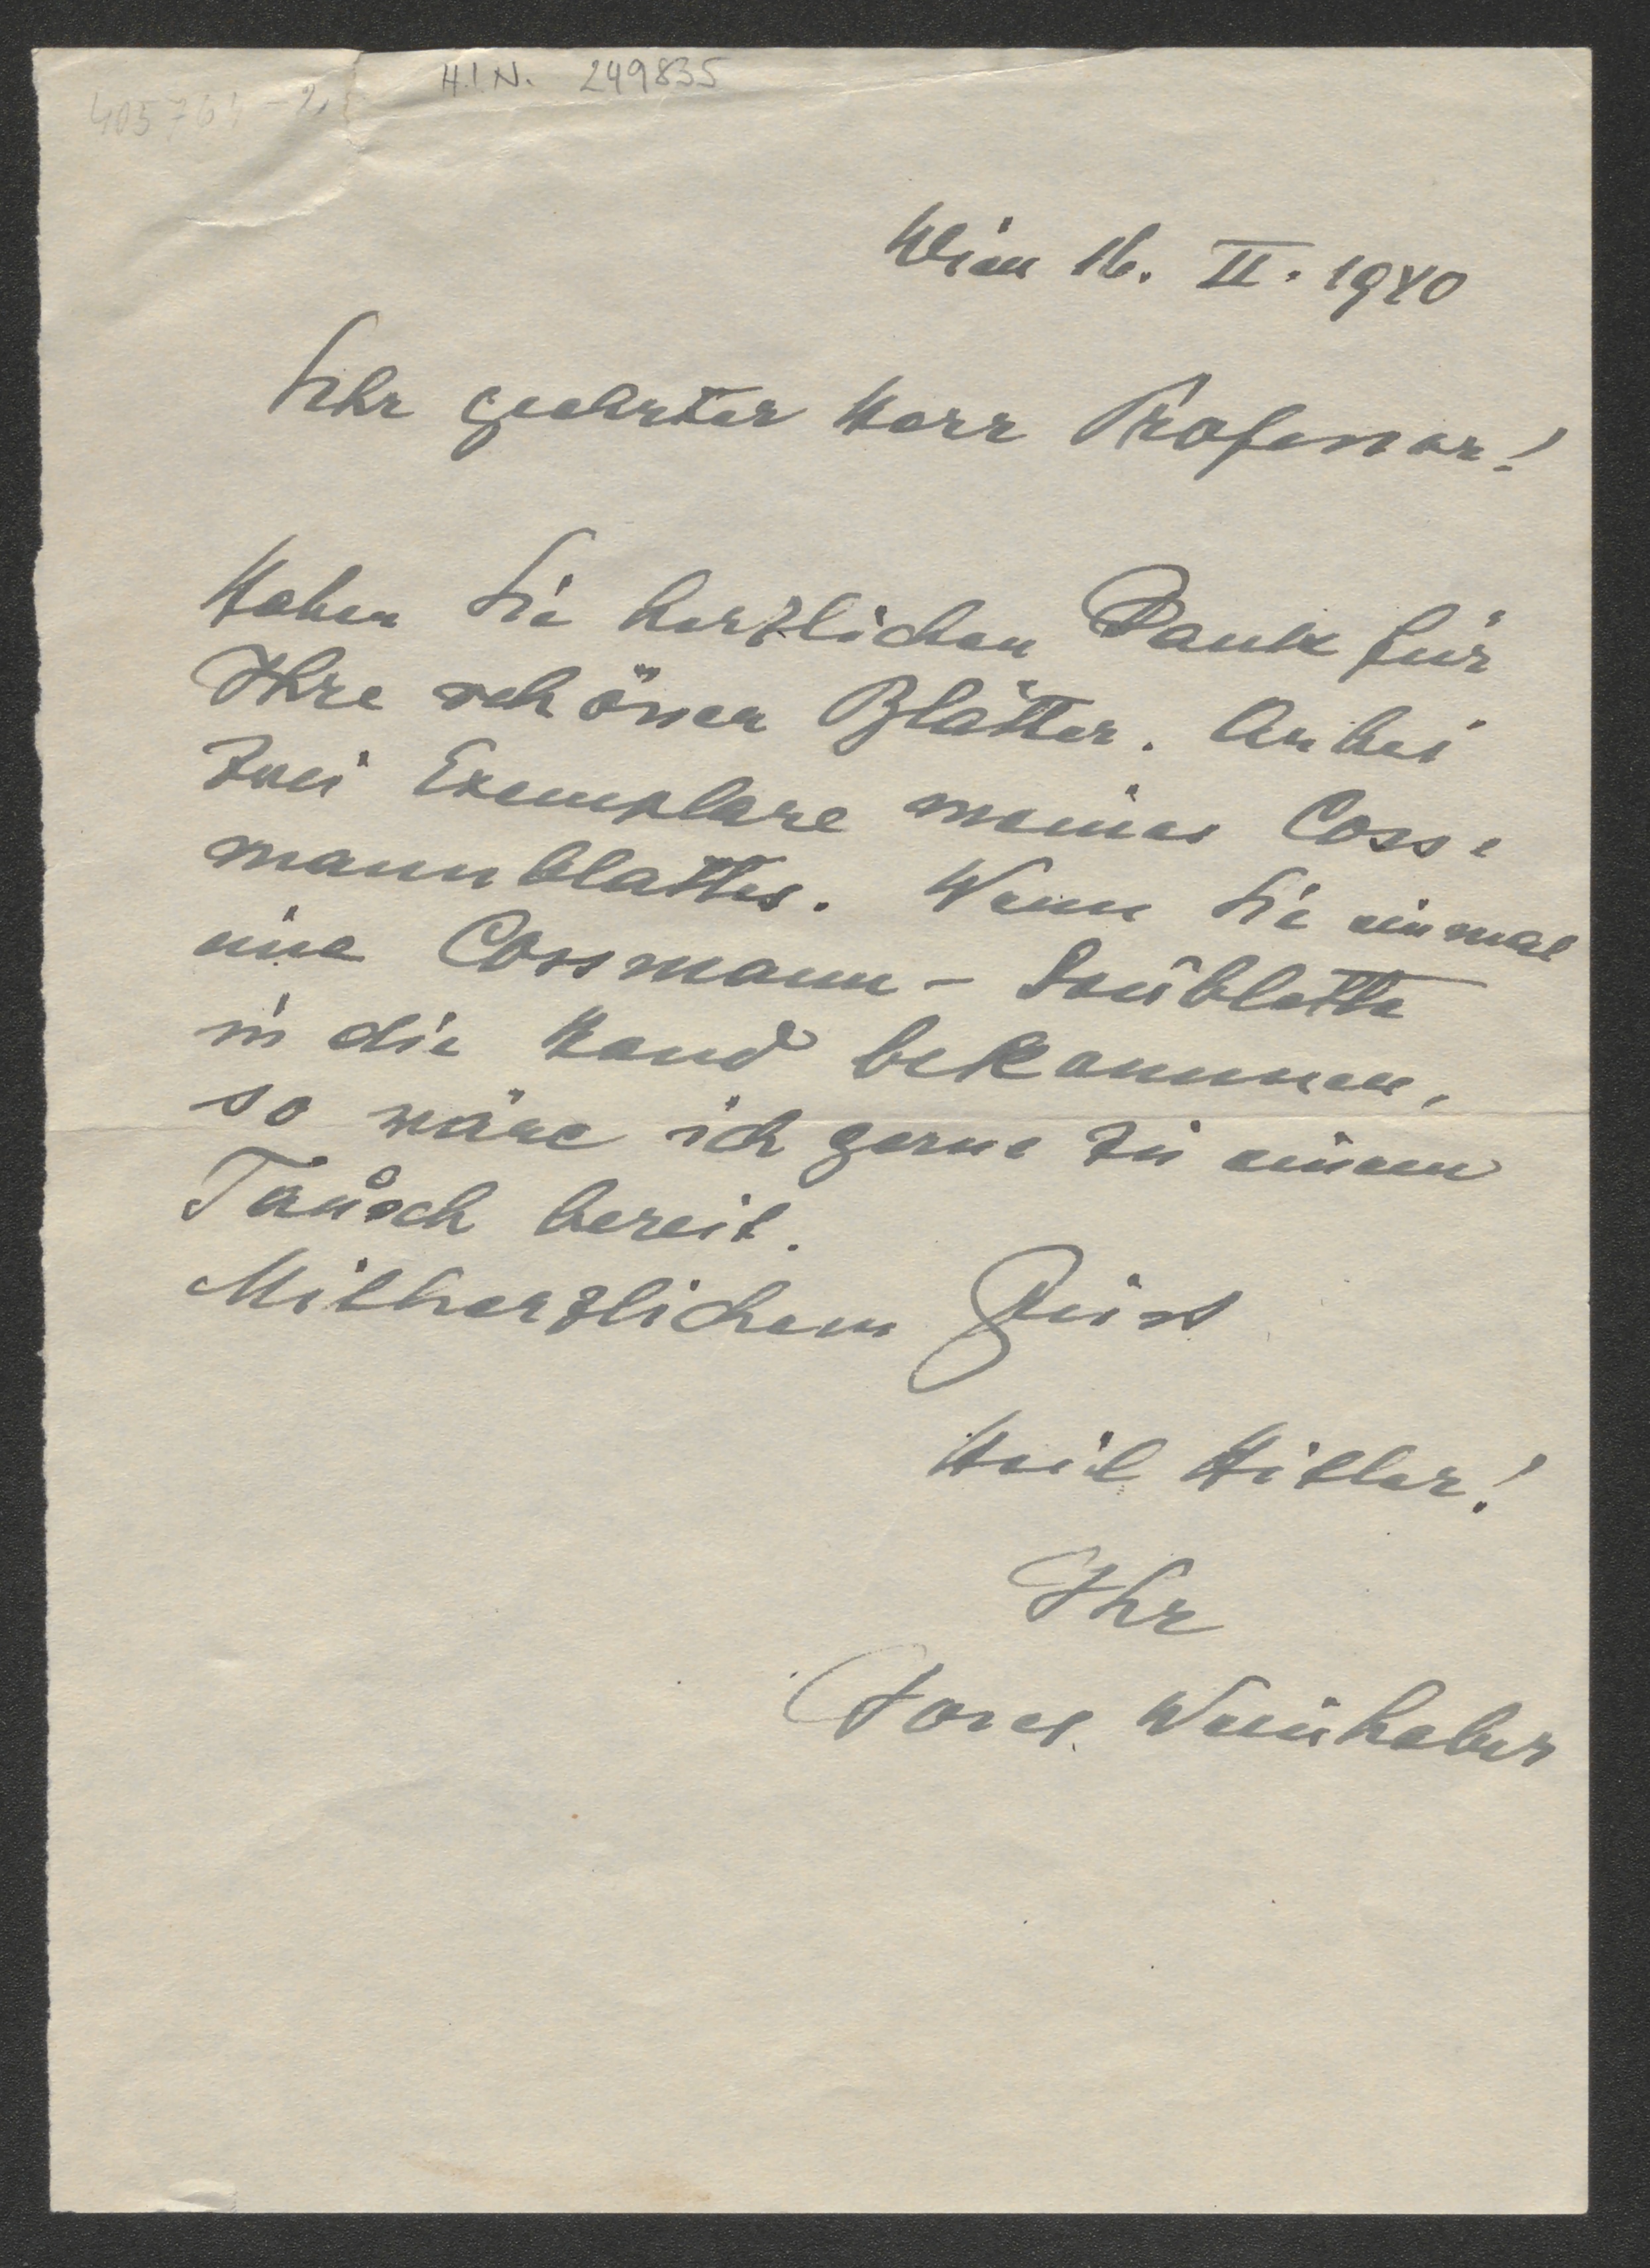 H.I.N. 249835
Wien 16. II. 1940
Sehr geehrter Herr Professor!
Haben Sie herzlichen Dank für
Ihre schönen Blätter. Anbei
zwei Exemplare meines Coss-
mannblattes. Wenn Sie einmal
eine Cossmann-Doublette
in die Hand bekommen,
so wäre ich gerne zu einem
Tausch bereit.
Mit herzlichem Gruss
Heil Hitler!
Ihr
Josef Weinheber